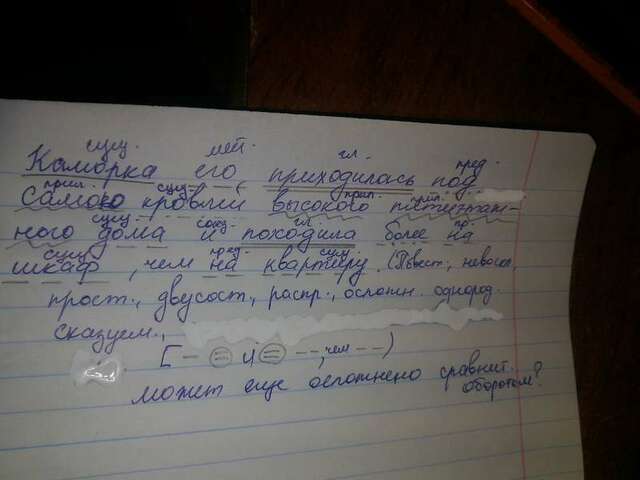 сущ. мест. гл. пред.
Каморка его приходилась под
прил. сущ. прил. прил.
самою кровлей высокого пятиэтаж-
сущ. союз гл. пр.
ного дома и походила более на
сущ. пред. сущ.
шкаф, чем на квартиру. (Повест., невоскл.,
прост., двусост., распр., осложн. однород.
сказуем.,
[– = и = – –, чем – –)
может еще осложнено сравнит.
оборотом?